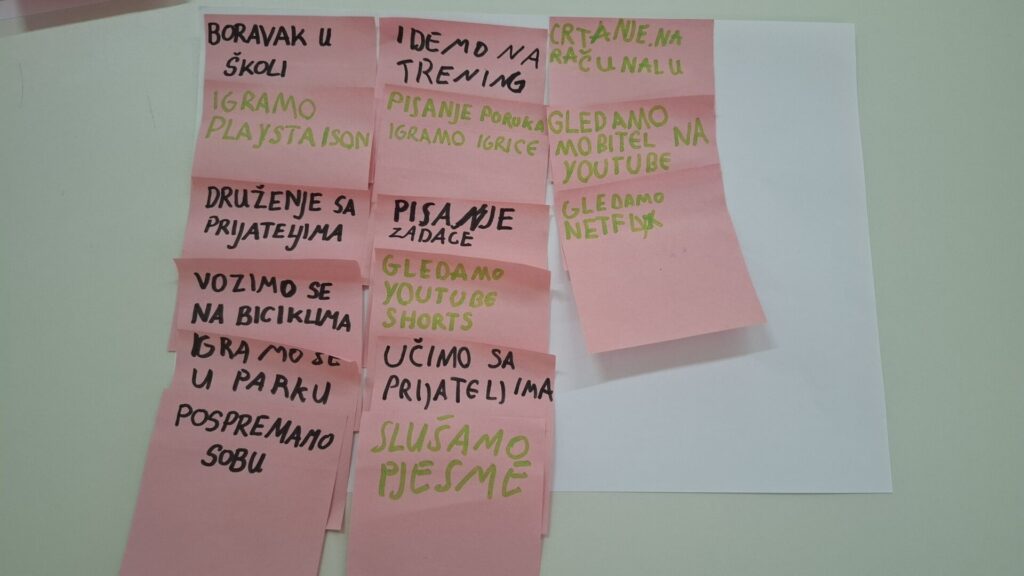 BORAVAK U
ŠKOLI
IGRAMO
PLAYSTAISON
DRUŽENJE SA
PRIJATELJIMA
VOZIMO SE
NA BICIKLIMA
IGRAMO SE
U PARKU
POSPREMAMO
SOBU
IDEMO NA
TRENING
PISANJE PORUKA
IGRAMO IGRICE
PISANJE
ZADAĆE
GLEDAMO
YOUTUBE
SHORTS
UČIMO SA
PRIJATELJIMA
SLUŠAMO
PJESME
CRTANJE NA
RAČUNALU
GLEDAMO
MOBITEL NA
YOUTUBE
GLEDAMO
NETFLIX